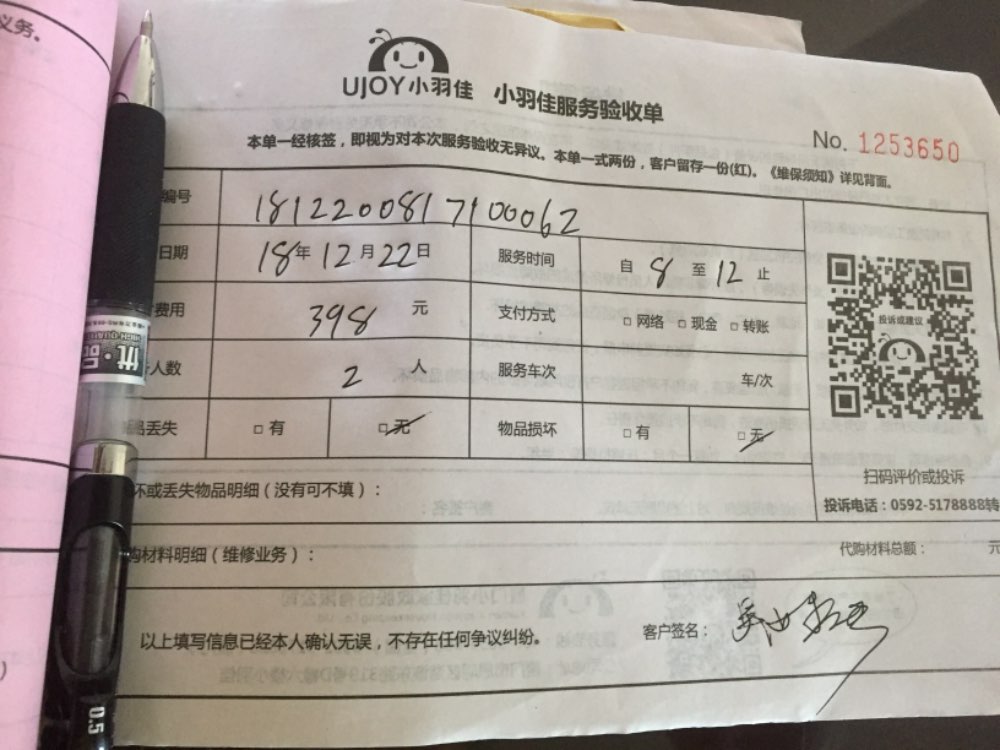 义务。
UJOY小羽佳 小羽佳服务验收单
No. 1253650
本单一经核签，即视为对本次服务验收无异议。本单一式两份，客户留存一份(红)。《维保须知》详见背面。
编号 1812200817100062
日期 18年12月22日 服务时间 自 8 至 12 止
费用 398 元 支付方式 □网络 □现金 □转账
人数 2 人 服务车次 车/次
品丢失 □有 □无 物品损坏 □有 □无
投诉或建议
扫码评价或投诉
投诉电话：0592-5178888转
坏或丢失物品明细（没有可不填）：
购材料明细（维修业务）： 代购材料总额： 元
以上填写信息已经本人确认无误，不存在任何争议纠纷。 客户签名：
优·品
0.5